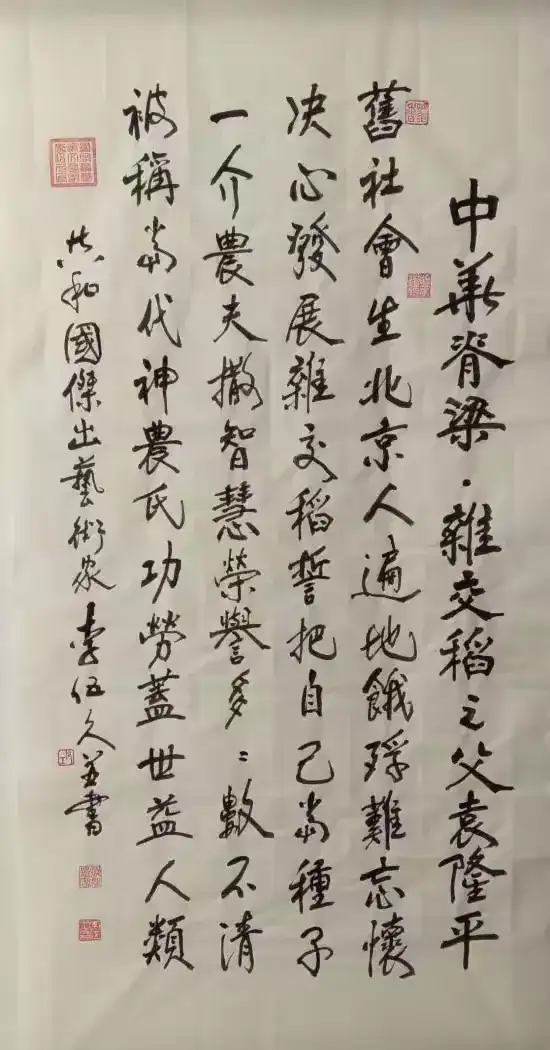 中華脊梁·雜交稻之父袁隆平
舊社會生北京人遍地餓殍難忘懷
决心發展雜交稻誓把自己當種子
一介農夫撒智慧榮譽多〻數不清
被稱當代神農氏功勞蓋世益人類
共和國傑出藝術家李伍久並書